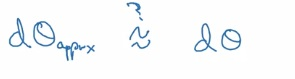 dΘ_apprx ≈^? dΘ